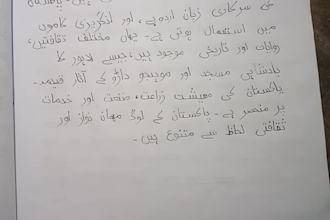 ہیں۔ پاکستان
کی سرکاری زبان اردو ہے، اور انگریزی کاموں
میں استعمال ہوتی ہے۔ یہاں مختلف ثقافتیں،
روایات اور تاریخی موجود ہیں، جیسے لاہور کا
بادشاہی مسجد اور موہنجو داڑو کے آثار قدیمہ۔
پاکستان کی معیشت زراعت، صنعت اور خدمات
پر منحصر ہے۔ پاکستان کے لوگ مہمان نواز اور
ثقافتی لحاظ سے متنوع ہیں۔